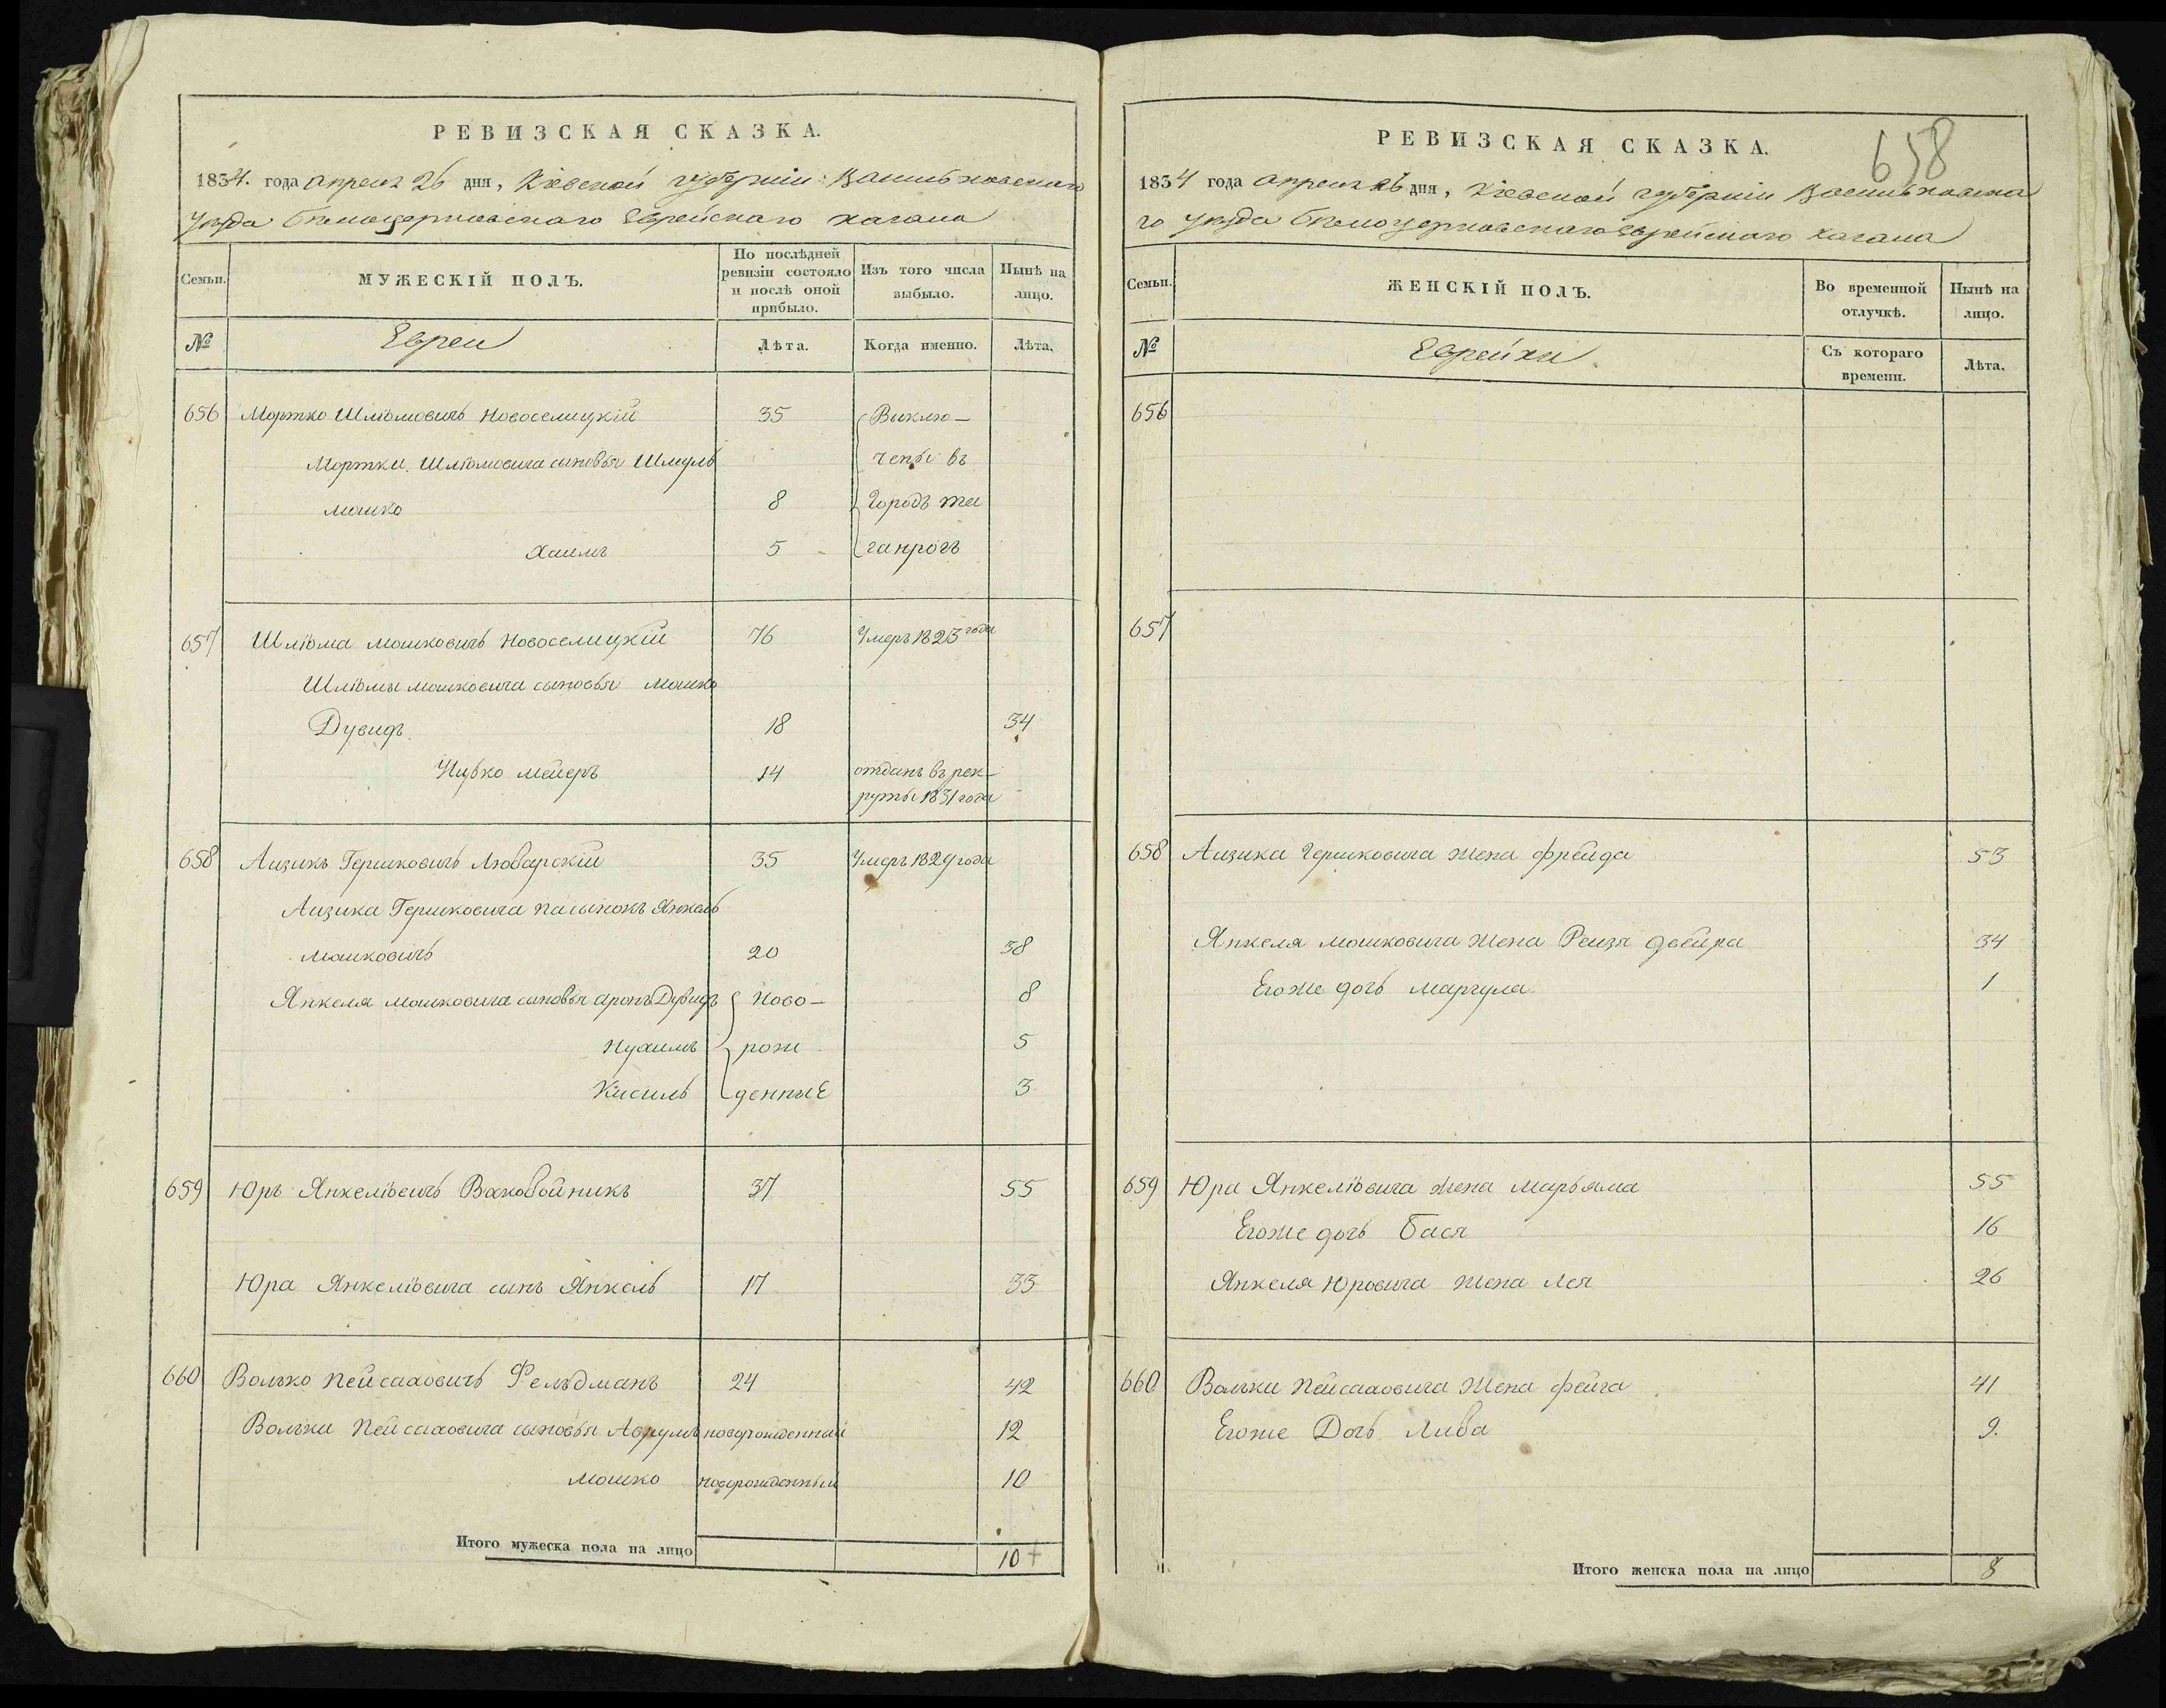 РЕВИЗСКАЯ СКАЗКА.
1834. года апреля 26 дня, Кіевской губерніи Васильковскаго
уезда белоцерковскаго Еврейскаго кагала
Семьи.
МУЖЕСКІЙ ПОЛЪ.
По послѣдней ревизіи состояло и послѣ оной прибыло.
Изъ того числа выбыло.
Нынѣ на лицо.
№
Евреи
Лѣта.
Когда именно.
Лѣта.
656 Мортко Шліомовичъ Новоселицкій 35 Выклю-
Мортки Шліомовича сыновья Шмуль чены въ
мошко 8 Городъ та
Хаимъ 5 ганрогъ
657 Шліома мошковичъ Новоселицкій 76 Умеръ 1823 года
Шліомы мошковича сыновья мошко
Дувидъ 18 34
Ицко мейеръ 14 отданъ въ рек-
руты 1831 года
658 Аизикъ Гершковичъ Любарскій 35 Умеръ 1829 года
Аизика Гершковича пасынокъ Янкель
мошковичъ 20 38
Янкеля мошковича сыновья аронъ Дувидъ Ново- 8
Нухимъ рож 5
Кисиль денные 3
659 Юръ Янкеліовичъ Вахобойникъ 37 55
Юра Янкеліовича сынъ Янкель 17 33
660 Волько Пейсаховичъ Фельдманъ 24 42
Вольки Пейсаховича сыновья Аврумъ новорожденный 12
мошко новорожденный 10
Итого мужеска пола на лицо 10
РЕВИЗСКАЯ СКАЗКА.
658
1834 года апреля 26 дня, Кіевской губерніи Васильковска
го уезда белоцерковскаго Еврейскаго кагала
Семьи.
ЖЕНСКІЙ ПОЛЪ.
Во временной отлучкѣ.
Нынѣ на лицо.
№
Еврейки
Съ котораго времени.
Лѣта.
656
657
658 Аизика Гершковича жена фрейда 53
Янкеля мошковича жена Рейзя двейра 34
Егоже дочь маргула 1
659 Юра Янкеліовича жена марьяма 55
Егоже дочь Бася 16
Янкеля Юровича жена Лея 26
660 Вольки Пейсаховича жена фейга 41
Егоже Дочь Либа 9.
Итого женска пола на лицо 8